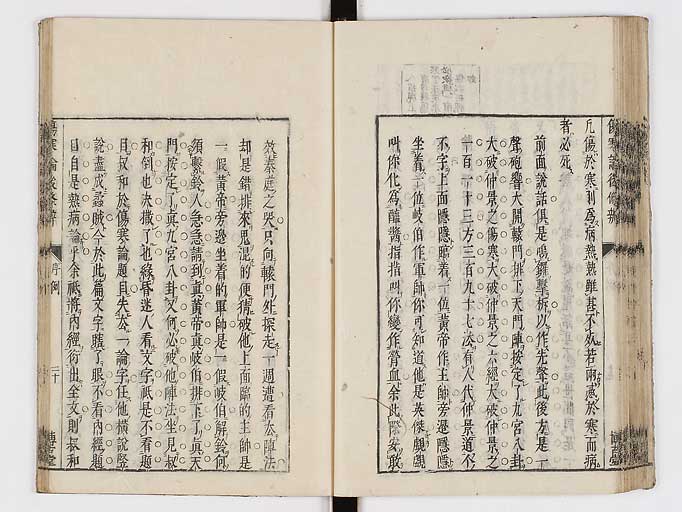 傷寒論後條辨
凡傷於寒則為病熱熱雖甚不死若兩感於寒而病
者必死
前面說話俱是鳴鑼擊柝以作先聲此後方是一
聲砲響大開轅門排下天門陣按定了九宮八卦
大破仲景之傷寒大破仲景之六經大破仲景之
一百一十三方三百九十七法有人代仲景道不
不字上面隱隱臨着一位黃帝作主帥旁邊隱隱
坐着一位岐伯作軍師你可知道他是英傑覷覷
叫你化為醢醬指指叫你變作膋血余此際安敢
效秦庭之哭只向轅門外探走一週遭看厺陣法
却是錯排來鬼混的便猜破他上面臨的主帥是
一假黃帝旁邊坐着的軍師是一假岐伯解鈴何
須繫鈴人急急請到真黃帝真岐伯排下了真天
門按定了真九宮八卦又何必破他陣法坐見叔
和倒也決撒了也緣昏迷人看文字祇是不看題
目叔和於傷寒論題目失厺一論字任他橫說豎
說盡成蟊賊今於此篇文字瞎了眼不看內經題
目自是熱病論乎余祇將內經衍出全文則叔和
傷寒論後條辨
序例
二十